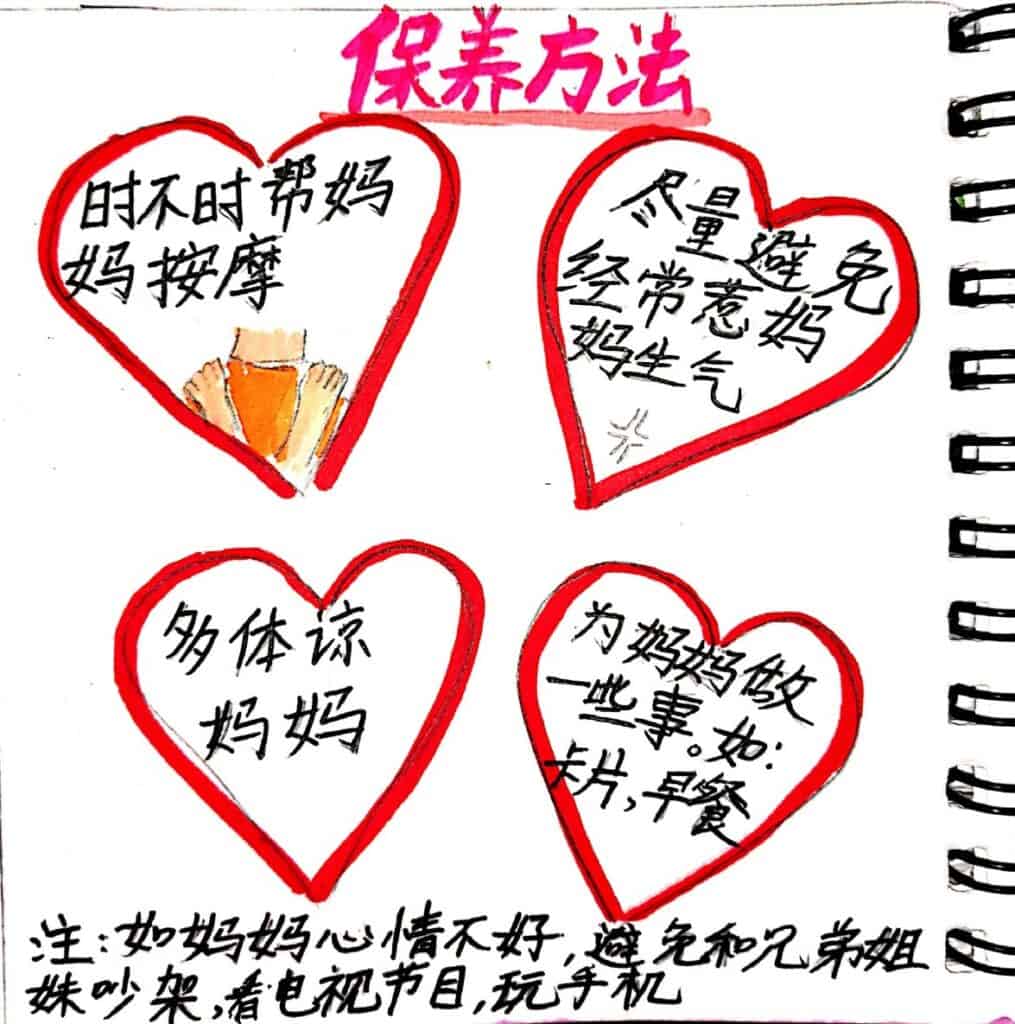 保养方法
时不时帮妈
妈按摩
尽量避免
经常惹妈
妈生气
多体谅
妈妈
为妈妈做
一些事。如:
卡片,早餐
注:如妈妈心情不好,避免和兄弟姐
妹吵架,看电视节目,玩手机